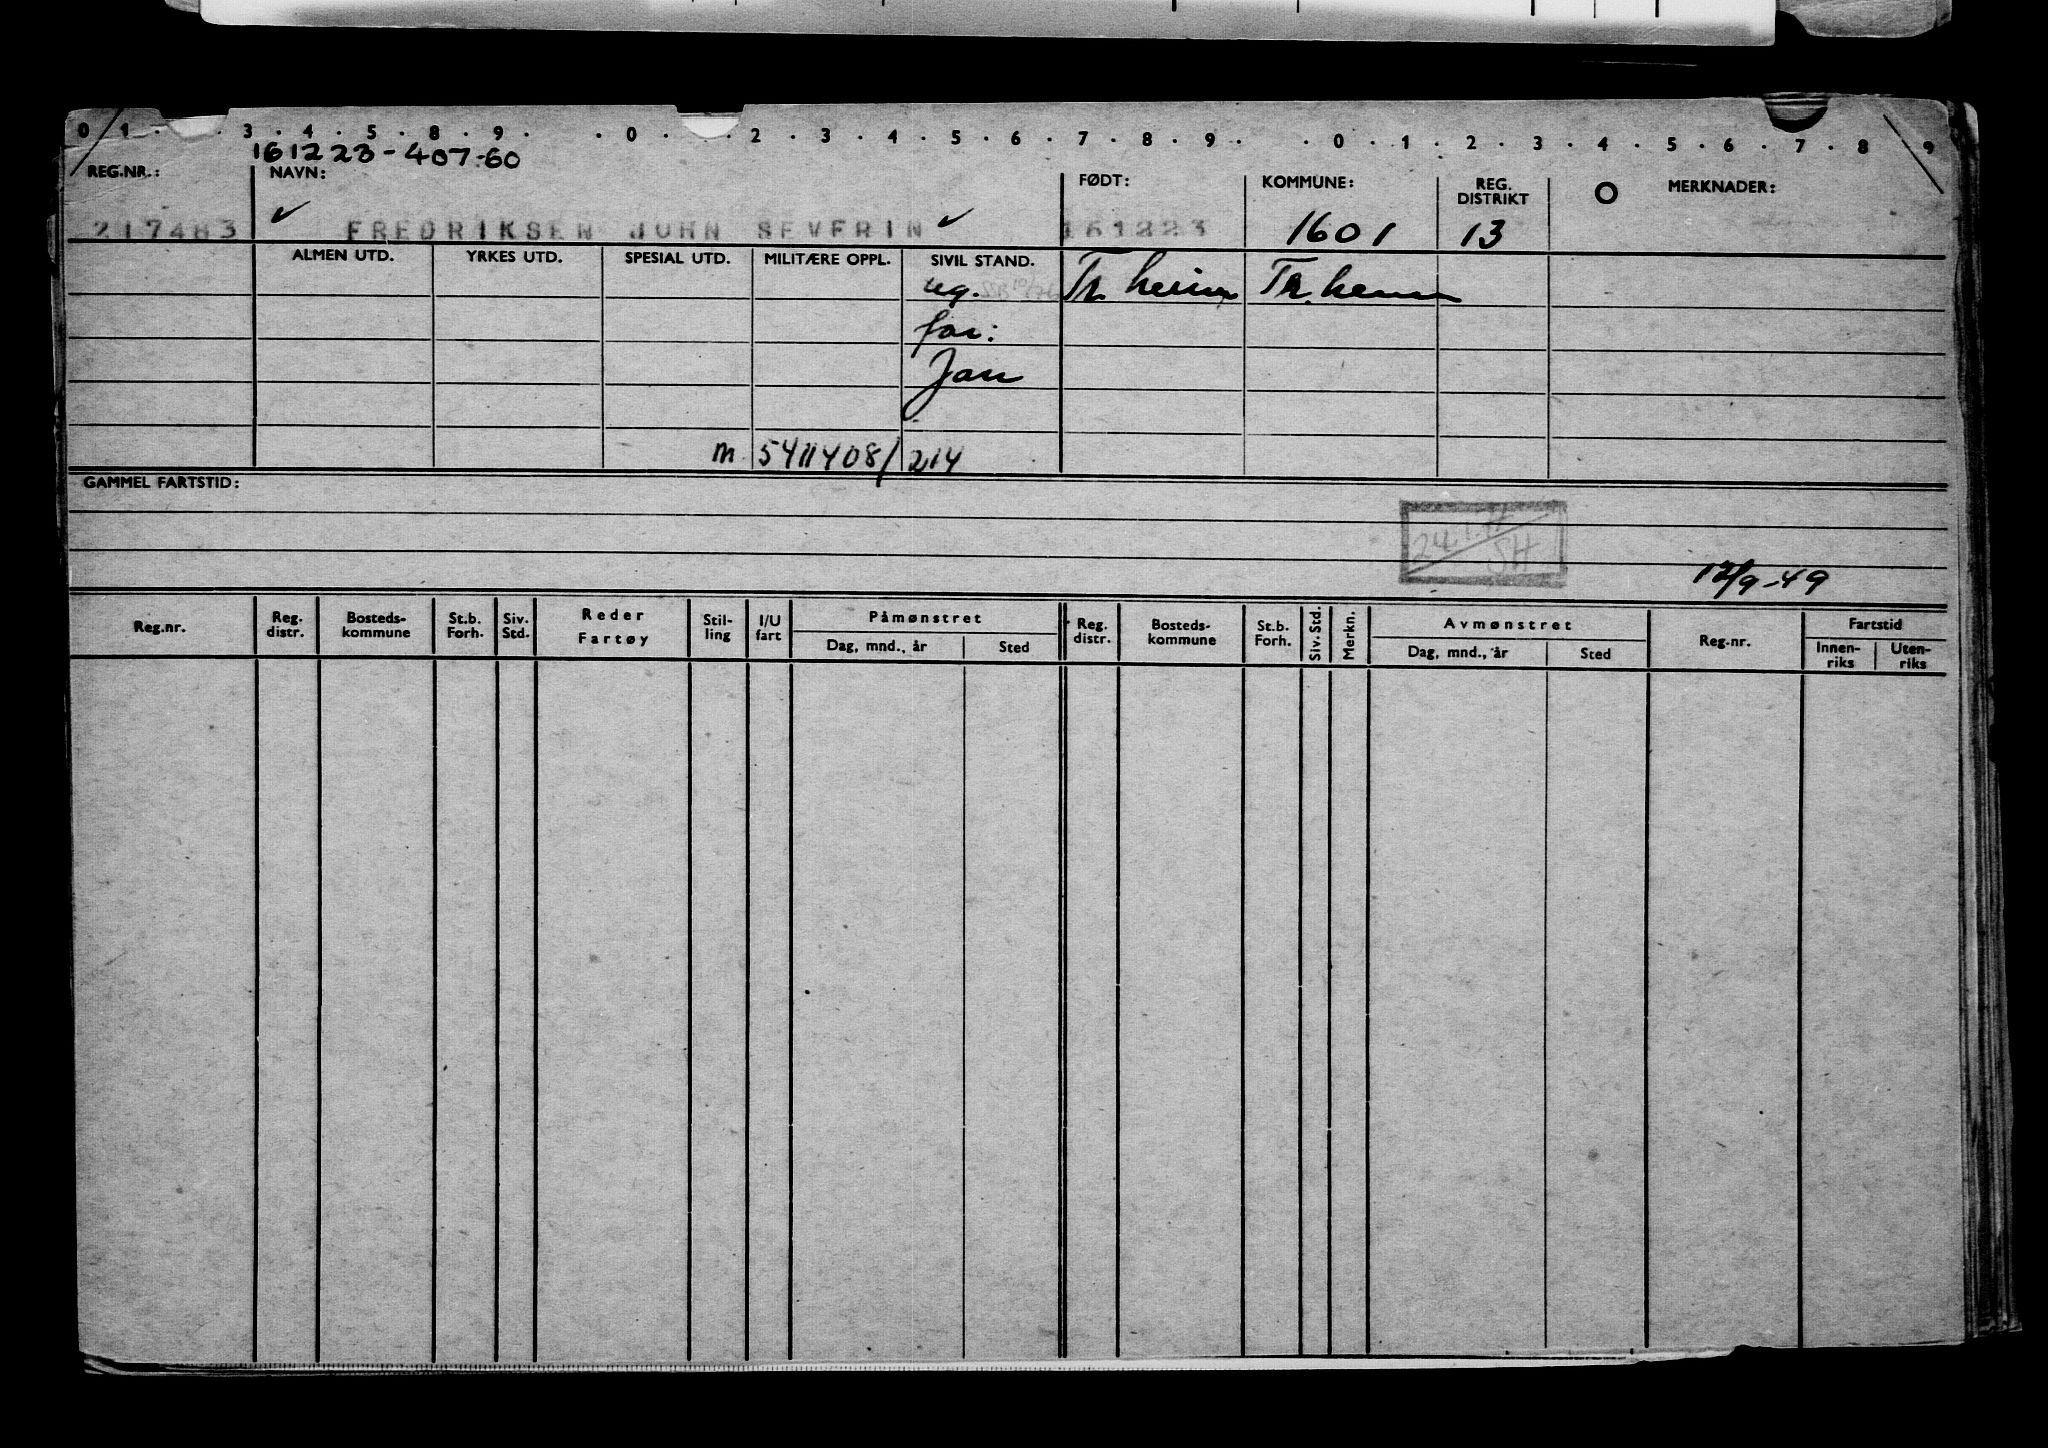 0 1 . . 3 . 4 . 5 . 8 . 9 . . 0 . . 2 . 3 . 4 . 5 . 6 . 7 . 8 . 9 . . 0 . 1 . 2 . 3 . 4 . 5 . 6 . 7 . 8 . 9
161223-407-60
REG.NR.: NAVN: FØDT: KOMMUNE: REG. DISTRIKT MERKNADER:
217483 ✓ FREDRIKSEN JOHN SEVERIN ✓ 161223 1601 13
ALMEN UTD. YRKES UTD. SPESIAL UTD. MILITÆRE OPPL. SIVIL STAND.
ug. Tr.heim Tr.heim
far:
Jan
m 5411408/214
GAMMEL FARTSTID:
SH
12/9-49
Reg.nr. Reg. distr. Bosteds-kommune St.b. Forh. Siv. Std. Reder Fartøy Stil-ling I/U fart Påmønstret Reg. distr. Bosteds-kommune St.b. Forh. Siv. Std. Merkn. Avmønstret Reg-nr. Fartstid
Dag, mnd., år Sted Dag, mnd., år Sted Innen-riks Uten-riks